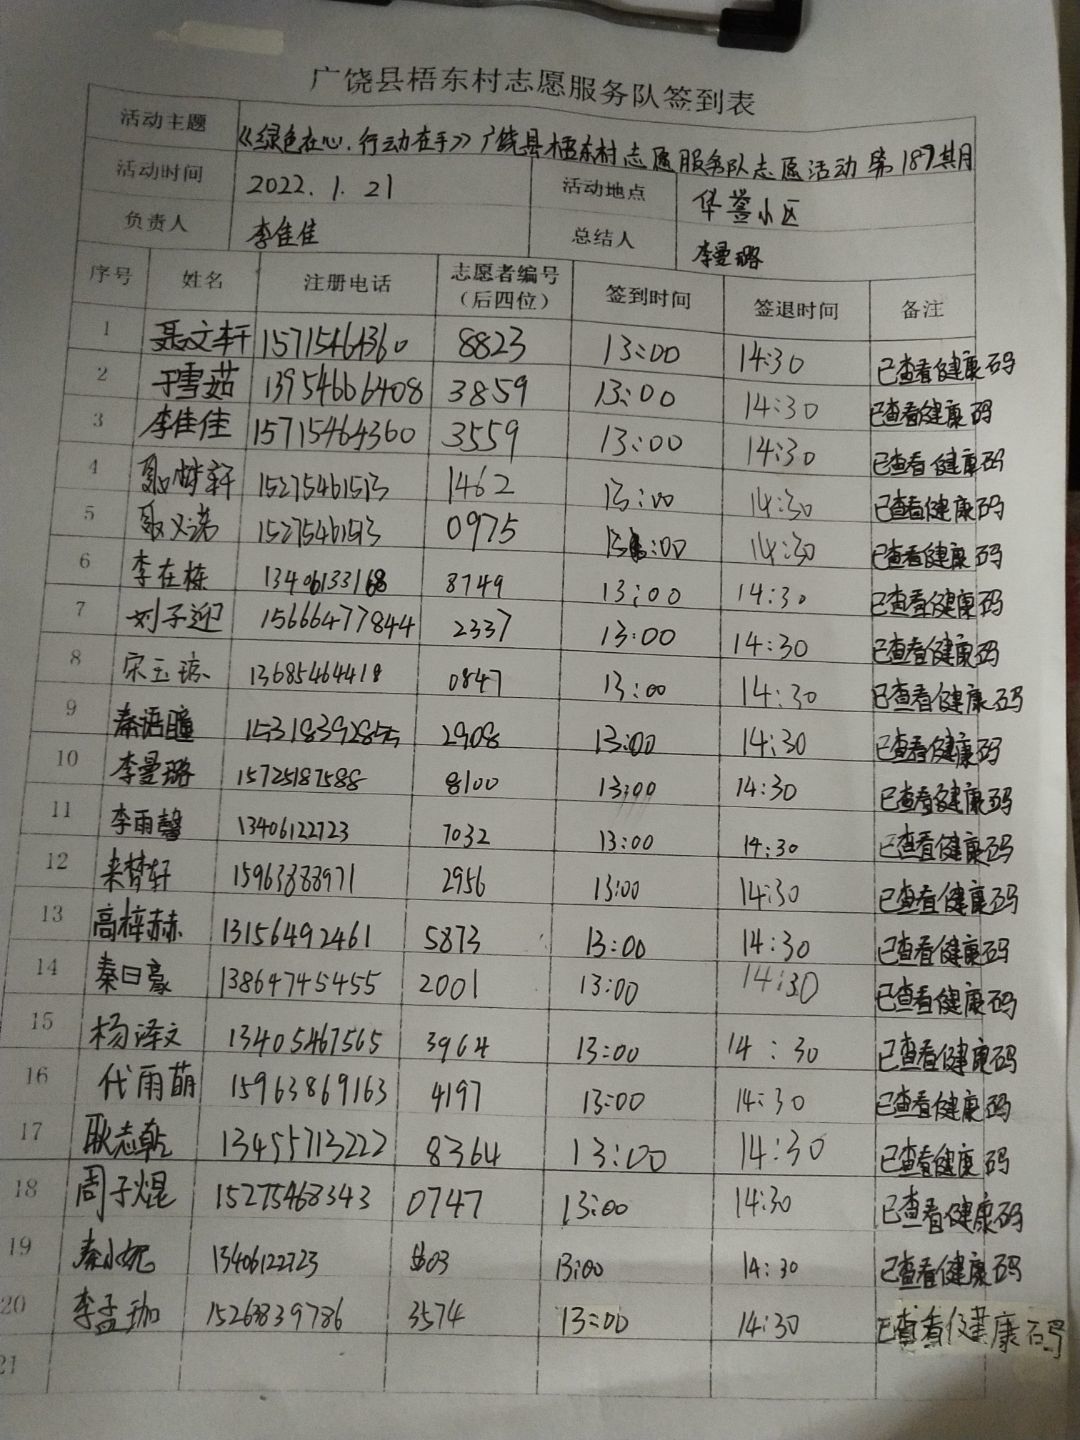 广饶县梧东村志愿服务队签到表
活动主题 《绿色在心.行动在手》广饶县梧东村志愿服务队志愿活动第187期
活动时间 2022.1.21 活动地点 华誉小区
负责人 李佳佳 总结人 李曼璐
序号 姓名 注册电话 志愿者编号（后四位） 签到时间 签退时间 备注
1 聂文轩 15715464360 8823 13:00 14:30 已查看健康码
2 于雪茹 13954666408 3859 13:00 14:30 已查看健康码
3 李佳佳 15715464360 3559 13:00 14:30 已查看健康码
4 15275461513 1462 13:00 14:30 已查看健康码
5 15275461513 0975 13:00 14:30 已查看健康码
6 李在栋 13406133168 8749 13:00 14:30 已查看健康码
7 刘子迎 15666477844 2337 13:00 14:30 已查看健康码
8 宋玉琼 13685464418 0847 13:00 14:30 已查看健康码
9 秦语瞳 15318392855 2908 13:00 14:30 已查看健康码
10 李曼璐 15725187588 8100 13:00 14:30 已查看健康码
11 李雨馨 13406122723 7032 13:00 14:30 已查看健康码
12 来梦轩 15963888971 2956 13:00 14:30 已查看健康码
13 高梓赫 13156492461 5873 13:00 14:30 已查看健康码
14 秦曰豪 13864745455 2001 13:00 14:30 已查看健康码
15 杨泽文 13405467565 3964 13:00 14:30 已查看健康码
16 代雨萌 15963869163 4197 13:00 14:30 已查看健康码
17 耿志乾 13455713222 8364 13:00 14:30 已查看健康码
18 周子焜 15275468343 0747 13:00 14:30 已查看健康码
19 秦小婉 13406122723 13:00 14:30 已查看健康码
20 李孟珈 15263839786 3574 13:00 14:30 已查看健康码
21